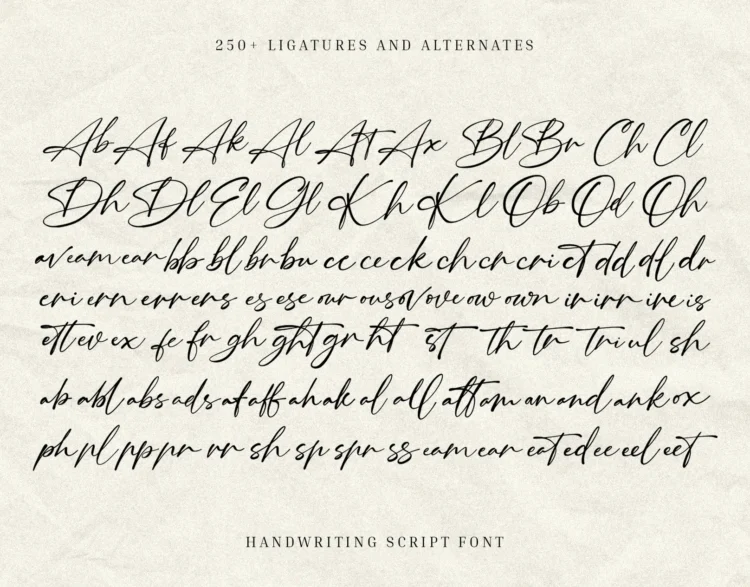 250+ LIGATURES AND ALTERNATES
Ab Af Ak Al At Ax Bl Br Ch Cl
Dh Dl El Gl Kh Kl Ob Od Oh
av eam ear bb bl br bu cc ce ck ch cr cri ct dd dl dr
eri ern err ers es ese our ous ov ove ow own ir irr ire is
ett ev ex fe fr gh ght gr ht st th tr tri ul sh
ab abl abs ads af aff ah ak al all att am an and ank ox
ph pl pp pr rr sh sp spr ss eam ear eat ed ee eel eet
HANDWRITING SCRIPT FONT